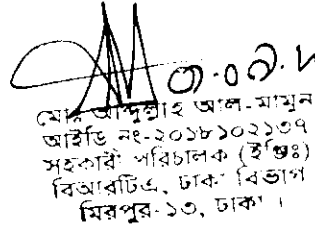 ৩.০৯.
মোঃ আব্দুল্লাহ আল-মামুন
আইডি নং-২০১৮১০২১৩৭
সহকারী পরিচালক (ইঞ্জিঃ)
বিআরটিএ, ঢাকা বিভাগ
মিরপুর-১৩, ঢাকা ।